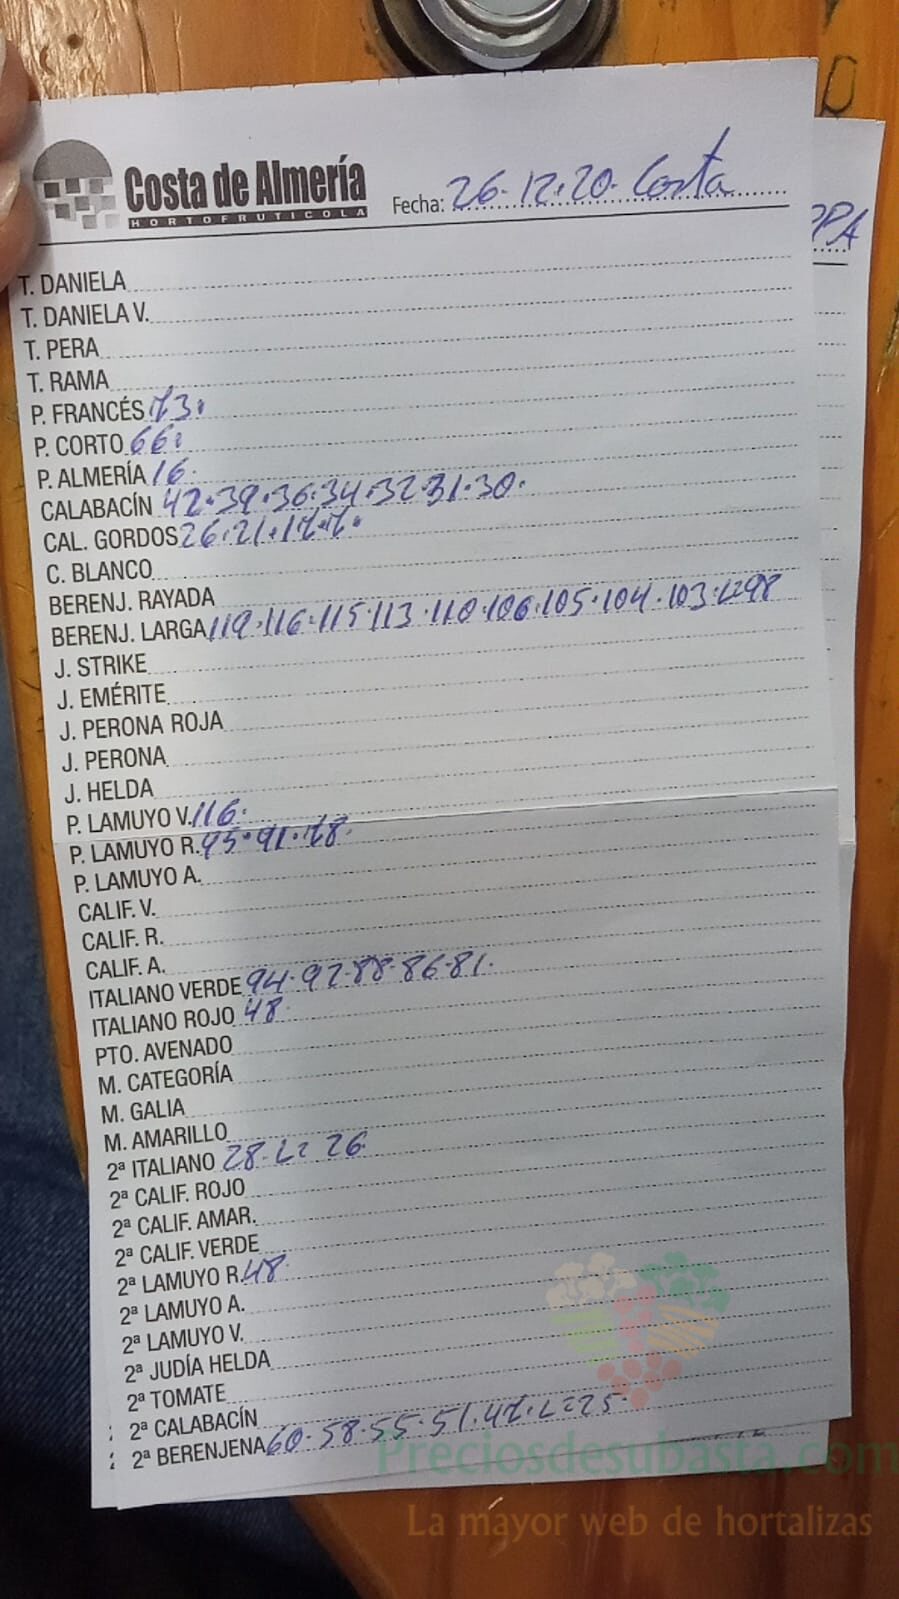 Costa de Almería
HORTOFRUTICOLA
Fecha: 26.12.20. Costa
PPA
T. DANIELA
T. DANIELA V.
T. PERA
T. RAMA
P. FRANCÉS 73.
P. CORTO 66.
P. ALMERÍA 16.
CALABACÍN 42.39.36.34.32.31.30.
CAL. GORDOS 26.21.17.7.
C. BLANCO
BERENJ. RAYADA
BERENJ. LARGA 119.116.115.113.110.106.105.104.103.L=98
J. STRIKE
J. EMÉRITE
J. PERONA ROJA
J. PERONA
J. HELDA
P. LAMUYO V. 116.
P. LAMUYO R. 95.91.78.
P. LAMUYO A.
CALIF. V.
CALIF. R.
CALIF. A.
ITALIANO VERDE 94.92.88.86.81.
ITALIANO ROJO 48
PTO. AVENADO
M. CATEGORÍA
M. GALIA
M. AMARILLO
2ª ITALIANO 28.L= 26.
2ª CALIF. ROJO
2ª CALIF. AMAR.
2ª CALIF. VERDE
2ª LAMUYO R. 48.
2ª LAMUYO A.
2ª LAMUYO V.
2ª JUDÍA HELDA
2ª TOMATE
2ª CALABACÍN
2ª BERENJENA 60.58.55.51.47.L=25.
Preciosdesubasta.com
La mayor web de hortalizas